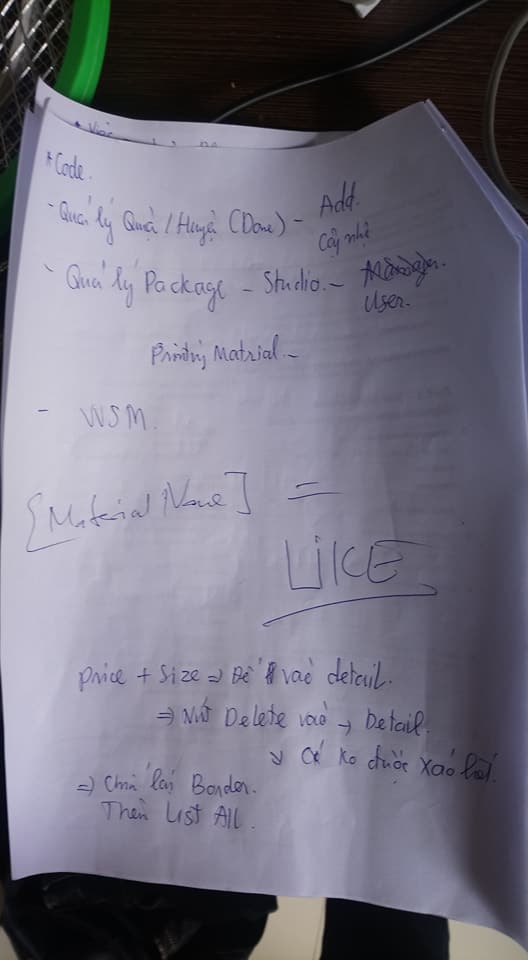 * Code.
- Quản lý Quận / Huyện (Done) - Add.
Cập nhật
- Quản lý Package - Studio. - Manager.
User.
Printing Matrial -
- WSM.
[Material Name] =
LIKE
price + Size => Để vào detail.
=> Nút Delete vào -> Detail.
-> Có ko được xoá hết.
=> Chỉnh lại Border.
Thên List All.